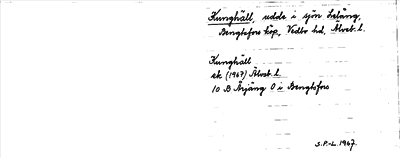 Kunghäll, udde i sjön Lelång,
Bengtsfors köp, Vedbo hd, Älvsb. l.
Kunghäll
ek (1967) Älvsb. l.
10 B Årjäng O i Bengtsfors
S.P.-L. 1967.